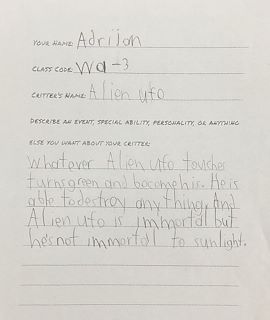 YOUR NAME: Adrijan
CLASS CODE: wa-3
CRITTER'S NAME: Alien ufo
DESCRIBE AN EVENT, SPECIAL ABILITY, PERSONALITY, OR ANYTHING
ELSE YOU WANT ABOUT YOUR CRITTER:
whatever Alien ufo touches
turns green and become his. He is
able to destroy any thing. And
Alien ufo is immortal but
he's not immortal to sunlight.